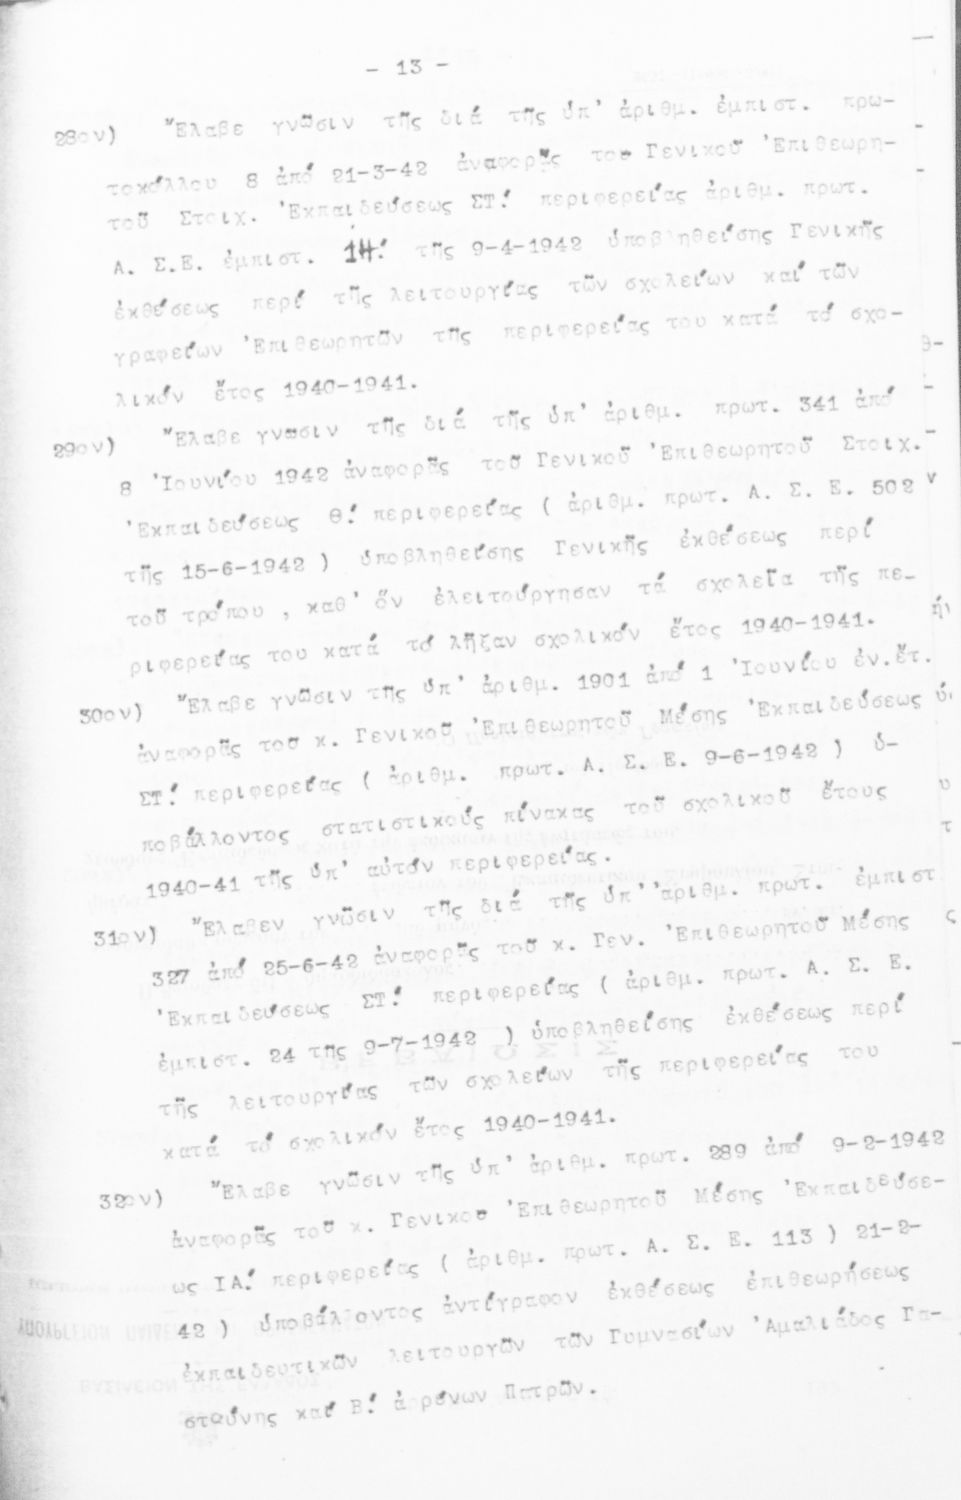 - 13 -
28ον) Ἔλαβε γνῶσιν τῆς διά τῆς ὑπ' ἀριθμ. ἐμπιστ. πρω-
τοκόλλου 8 ἀπό 21-3-42 ἀναφορᾶς του Γενικοῦ Ἐπιθεωρη-
τοῦ Στοιχ. Ἐκπαιδεύσεως ΣΤ! περιφερείας ἀριθμ. πρωτ.
Α. Σ.Ε. ἐμπιστ. 14! τῆς 9-4-1942 ὑποβληθείσης Γενικῆς
ἐκθέσεως περί τῆς λειτουργίας τῶν σχολείων καί τῶν
γραφείων Ἐπιθεωρητῶν τῆς περιφερείας του κατά τό σχο-
λικόν ἔτος 1940-1941.
29ον) Ἔλαβε γνωσιν τῆς διά τῆς ὑπ' ἀριθμ. πρωτ. 341 ἀπό
8 Ἰουνίου 1942 ἀναφορᾶς τοῦ Γενικοῦ Ἐπιθεωρητοῦ Στοιχ.
Ἐκπαιδεύσεως Θ! περιφερείας ( ἀριθμ. πρωτ. Α. Σ. Ε. 502
τῆς 15-6-1942 ) ὑποβληθείσης Γενικῆς ἐκθέσεως περί
τοῦ τρόπου , καθ' ὅν ἐλειτούργησαν τά σχολεῖα τῆς πε-
ριφερείας του κατά τό λῆξαν σχολικόν ἔτος 1940-1941.
30ον) Ἔλαβε γνῶσιν τῆς ὑπ' ἀριθμ. 1901 ἀπό 1 Ἰουνίου ἐν.ἔτ.
ἀναφορᾶς του κ. Γενικοῦ Ἐπιθεωρητοῦ Μέσης Ἐκπαιδεύσεως
ΣΤ! περιφερείας ( ἀριθμ. πρωτ. Α. Σ. Ε. 9-6-1942 ) ὑ-
ποβάλλοντος στατιστικούς πίνακας τοῦ σχολικοῦ ἔτους
1940-41 τῆς ὑπ' αὐτόν περιφερείας.
31ον) Ἔλαβεν γνῶσιν τῆς διά τῆς ὑπ' ἀριθμ. πρωτ. ἐμπιστ
327 ἀπό 25-6-42 ἀναφορᾶς τοῦ κ. Γεν. Ἐπιθεωρητοῦ Μέσης
Ἐκπαιδεύσεως ΣΤ! περιφερείας ( ἀριθμ. πρωτ. Α. Σ. Ε.
ἐμπιστ. 24 τῆς 9-7-1942 ) ὑποβληθείσης ἐκθέσεως περί
τῆς λειτουργίας τῶν σχολείων τῆς περιφερείας του
κατά τό σχολικόν ἔτος 1940-1941.
32ον) Ἔλαβε γνῶσιν τῆς ὑπ' ἀριθμ. πρωτ. 289 ἀπό 9-2-1942
ἀναφορᾶς τοῦ κ. Γενικου Ἐπιθεωρητοῦ Μέσης Ἐκπαιδεύσε-
ως ΙΑ! περιφερείας ( ἀριθμ. πρωτ. Α. Σ. Ε. 113 ) 21-2-
42 ) ὑποβάλλοντος ἀντίγραφον ἐκθέσεως ἐπιθεωρήσεως
ἐκπαιδευτικῶν λειτουργῶν τῶν Γυμνασίων Ἀμαλιάδος Γα-
στούνης καί Β! ἀρρένων Πατρῶν.